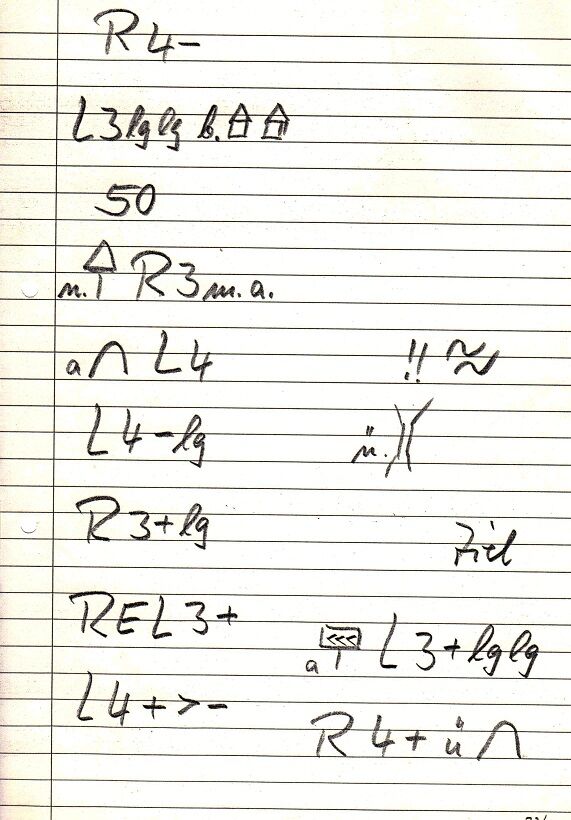 R 4 -
L 3 lg lg b.
50
n. R 3 m. a.
a ∩ L 4
!! ≈
L 4 - lg
ü. )(
R 3 + lg
Ziel
REL 3 +
a <<< L 3 + lg lg
L 4 + > -
R 4 + ü ∩